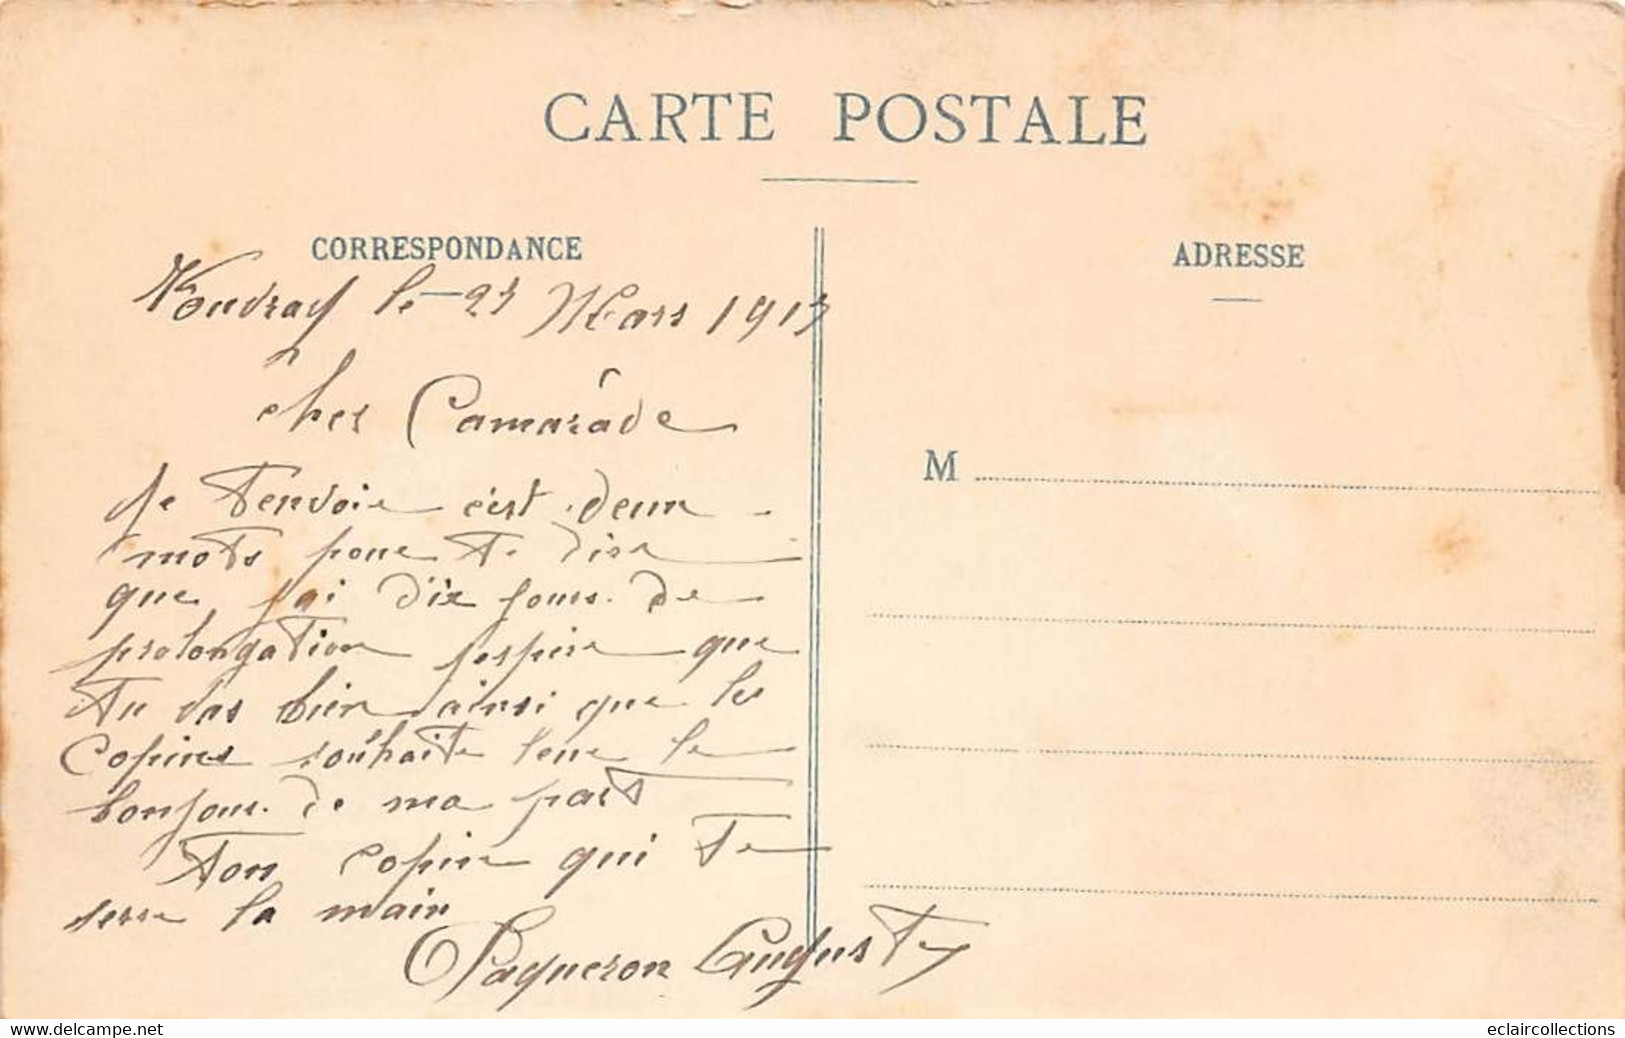 CARTE POSTALE
CORRESPONDANCE
ADRESSE
Vouvray le 23 Mars 1913
cher Camarade
M
Je t'envoie c'est deux
mots pour te dire
que j'ai dix jours de
prolongation j'espère que
tu vas bien ainsi que les
copins souhaite leur le
bonjour de ma part
Ton copin qui te
serre la main
Paqueron Auguste
www.delcampe.net
eclaircollections